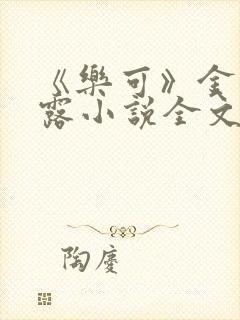 《樂可》金
露小說全文
陶慶